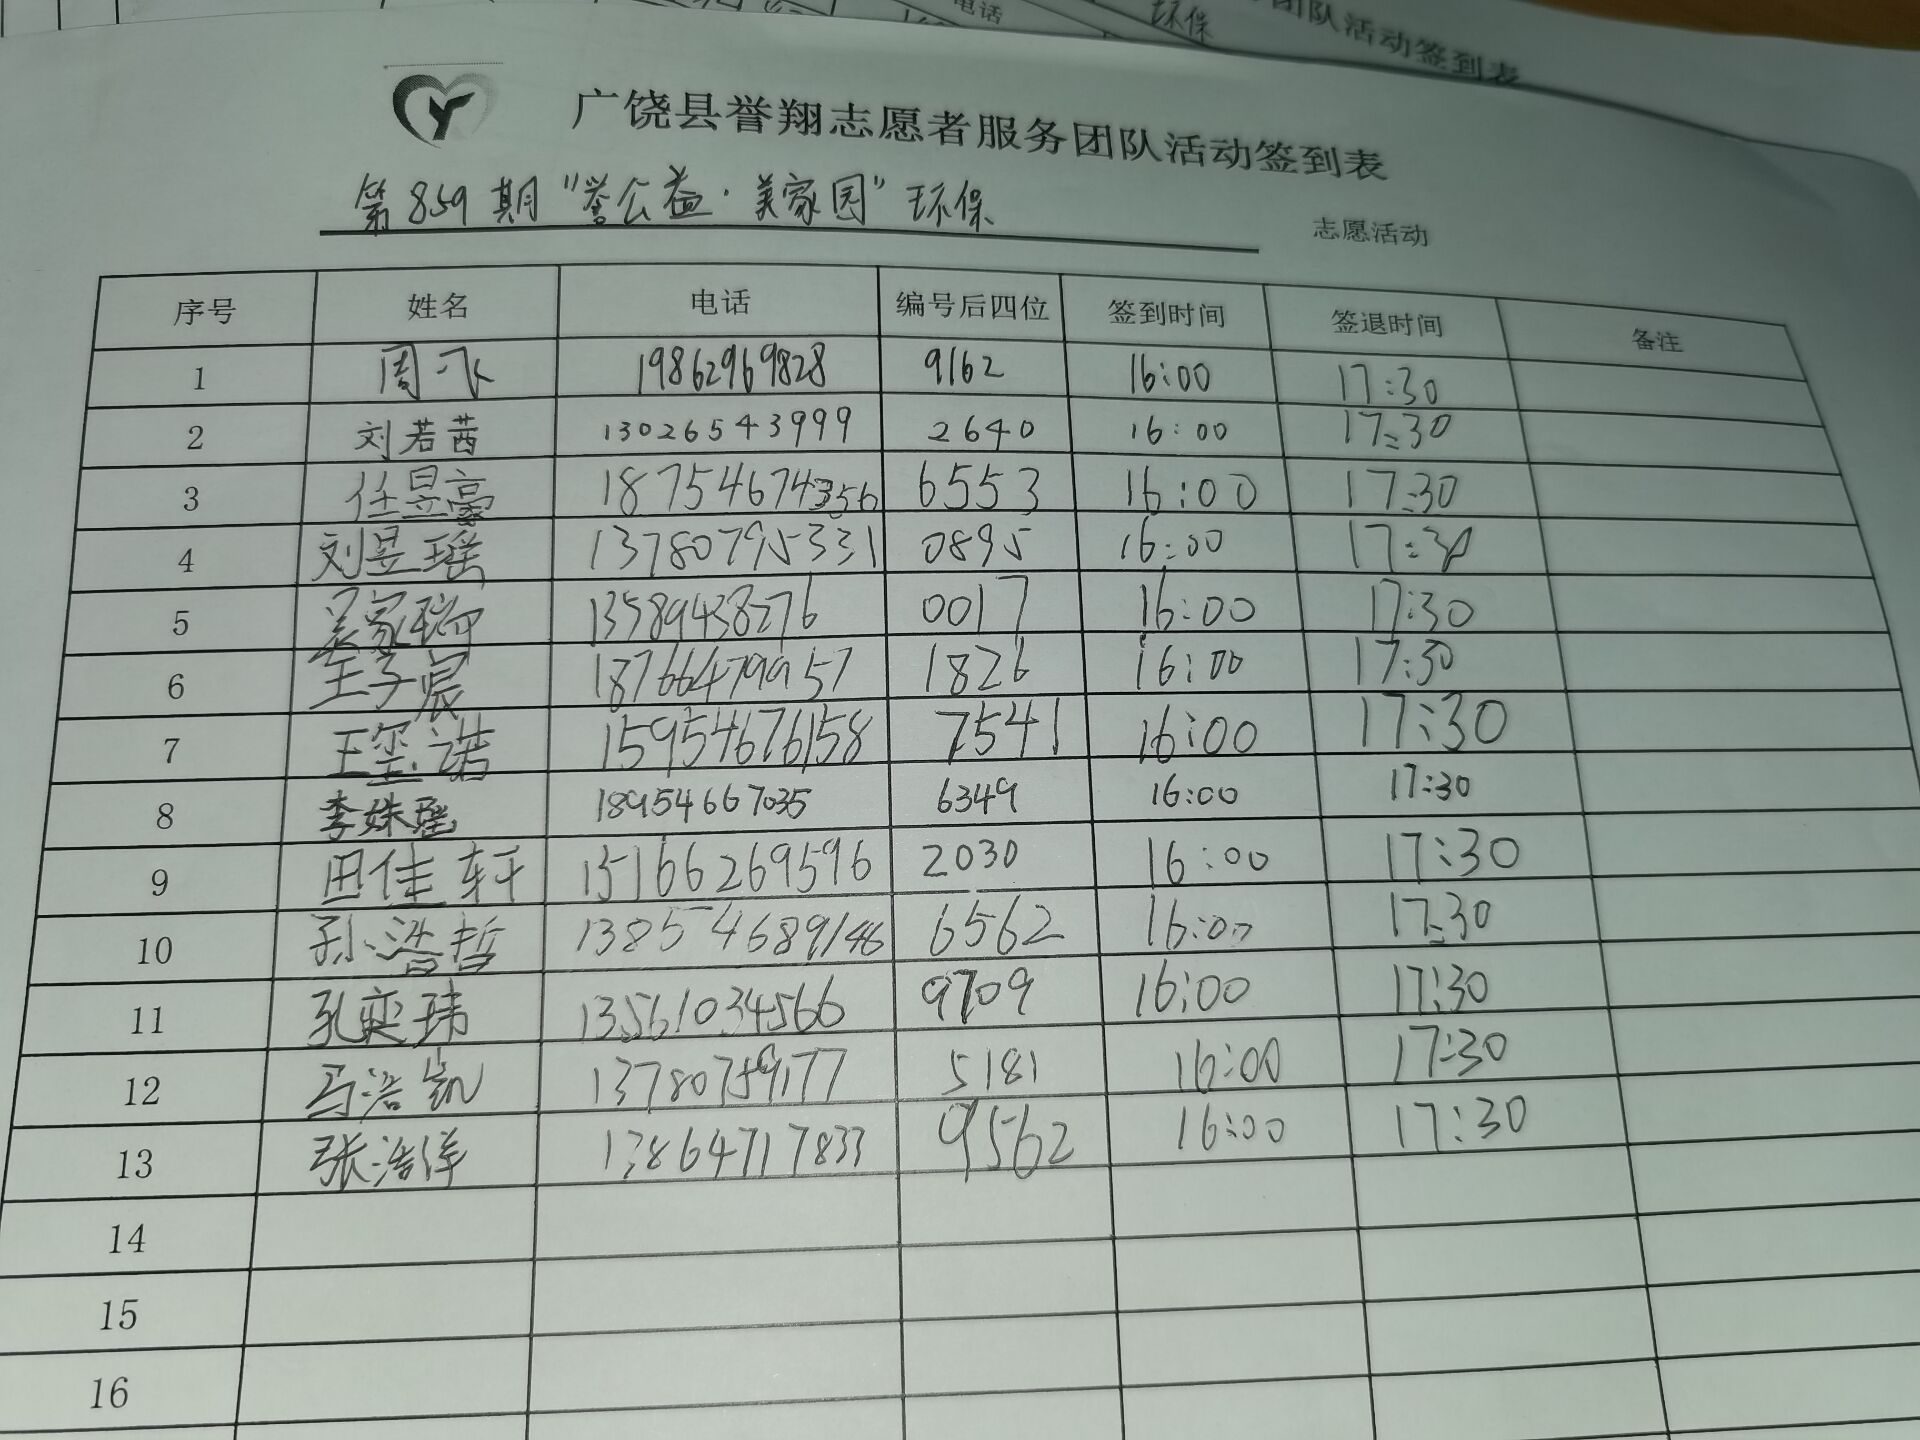 电话
环保
团队活动签到表
广饶县誉翔志愿者服务团队活动签到表
第859期“誉公益·美家园”环保 志愿活动
序号 姓名 电话 编号后四位 签到时间 签退时间 备注
1 周飞 19862969828 9162 16:00 17:30
2 刘若茜 13026543999 2640 16:00 17:30
3 任昱豪 18754674356 6553 16:00 17:30
4 刘昱瑶 13780795331 0895 16:00 17:30
5 13589438276 0017 16:00 17:30
6 王子宸 18766479957 1826 16:00 17:30
7 王玺诺 15954676158 7541 16:00 17:30
8 李姝瑶 18954667035 6349 16:00 17:30
9 田佳轩 15166269596 2030 16:00 17:30
10 孙浩哲 13854689146 6562 16:00 17:30
11 孔奕玮 13561034566 9709 16:00 17:30
12 马浩凯 13780759177 5181 16:00 17:30
13 张浩洋 13864717833 9562 16:00 17:30
14
15
16